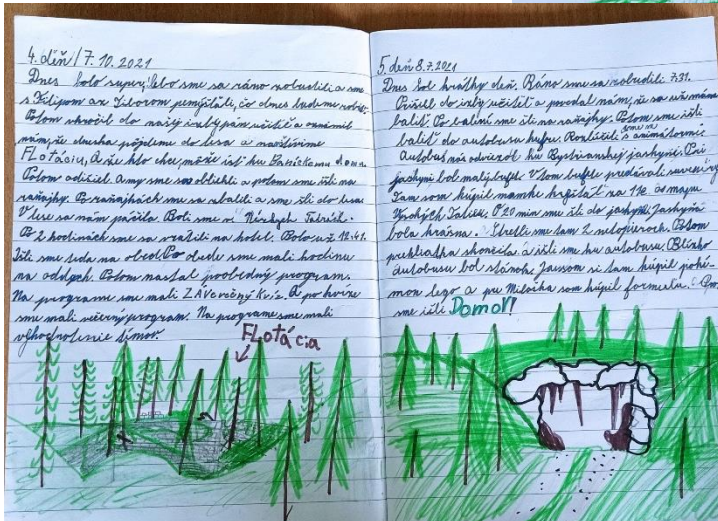 4. deň / 7. 10. 2021
Dnes bolo super! lebo sme sa ráno zobudili a sme
s Filipom az Tiborom premýšľali, čo dnes budeme robiť.
Potom vkročil do našej izby pán učiteľ a oznámil
nám, že dneska pôjdeme do lesa a navštívime
FLotáciu, A že kto chce, môže ísť ku
Potom odišiel. Amy sme sa obliekli a potom sme išli na
raňajky. Po raňajkách sme sa zbalili a sme išli do lesa.
V lese sa nám páčilo. Boli sme vi Nízkych Tatrách.
Po 2 hodinách sme sa vrátili na hotel. Bolo už 12:41.
Išli sme teda na obed. Po obede sme mali hodinu
na oddych. Potom nastal poobedný program.
Na programe sme mali ZÁVerečný Kvíz. A po kvíze
sme mali večerný program. Na programe sme mali
vyhodnotenie tímov.
FLotácia
5. deň 8.7.2021
Dnes bol krátky deň. Ráno sme sa zobudili 7:31.
Prišiel do izby učiteľ a povedal nám, že sa už máme
baliť. Po balení sme išli na raňajky. Potom sme išli
baliť do autobusu kufre. Rozlúčili sme sa s animátormi.
Autobus nás odviezol ku Bystrianskej jaskyni. Pri
jaskyni bol malý bufet. V tom bufete predávali suveníry
Tam som kúpil mamke krýštáľ za 11€ a mapu
Vysokých Tatier. O 20 min sme išli do jaskyni. Jaskyňa
bola krásna. Stretli sme tam 2 netopierov. Potom
prehliadka skončila a išli sme ku autobusu. Blízko
autobusu bol stánok. Ja som si tam kúpil poké-
mon lego a pre Miloška som kúpil formulu.
sme išli Domov!